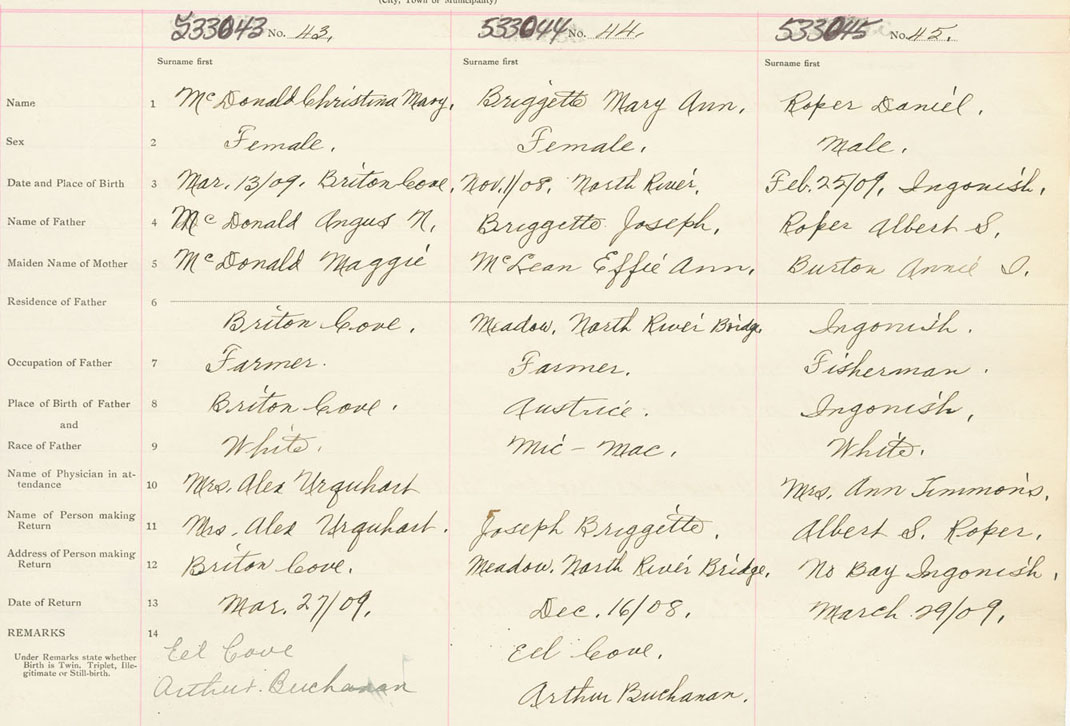 (City, Town or Municipality)
533043 No. 43. 533044 No. 44. 533045 No. 45.
Surname first Surname first Surname first
Name 1 McDonald Christina Mary. Briggette Mary Ann. Roper Daniel.
Sex 2 Female. Female. Male.
Date and Place of Birth 3 Mar. 13/09. Briton Cove. Nov. 1/08. North River. Feb. 25/09. Ingonish.
Name of Father 4 McDonald Angus N. Briggette Joseph. Roper Albert S.
Maiden Name of Mother 5 McDonald Maggie McLean Effie Ann. Burton Annie I.
Residence of Father 6
Briton Cove. Meadow. North River Bridge Ingonish.
Occupation of Father 7 Farmer. Farmer. Fisherman.
Place of Birth of Father 8 Briton Cove. Austrice. Ingonish.
and
Race of Father 9 White. Mic - Mac. White.
Name of Physician in at-
tendance 10 Mrs. Alex Urquhart Mrs. Ann Timmons.
Name of Person making
Return 11 Mrs. Alex Urquhart. Joseph Briggette. Albert S. Roper.
Address of Person making
Return 12 Briton Cove. Meadow. North River Bridge. No Bay Ingonish.
Date of Return 13 Mar. 27/09. Dec. 16/08. March 29/09.
REMARKS 14
Under Remarks state whether
Birth is Twin, Triplet, Ille-
gitimate or Still-birth.
Eel Cove Eel Cove.
Arthur Buchanan Arthur Buchanan.